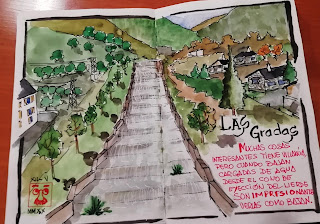 LAS
Gradas
MUCHAS COSAS
INTERESANTES TIENE
PERO CUANDO BAJAN
CARGADAS DE AGUA
DESDE EL CONO DE
EYECCIÓN DEL
SON IMPRESIONANTE
VERAS COMO BAJAN.